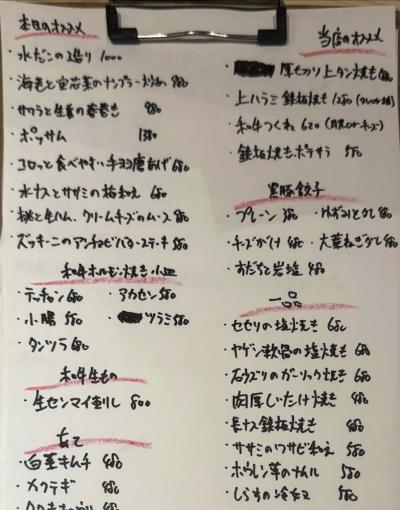 本日のオススメ
・水だこの造り 1000
・海老と空芯菜のナンプラー炒め 980
・サワラと生姜の春巻き 980
・ポッサム 1380
・コロッと食べやすい手羽唐あげ 680
・水ナスとササミの梅和え 680
・桃と生ハム、クリームチーズのムース 880
・ズッキーニのアンチョビバターステーキ 580
和牛ホルモン焼き小皿
・テッチャン 680
・アカセン 580
・小腸 580
・ツラミ 580
・タンツラ 680
和牛生もの
・生センマイ刺し 800
あて
・白菜キムチ 480
・メクテギ
当店のオススメ
・厚切り上タン焼き
・上ハラミ鉄板焼き 1280
・和牛つくね 620
・鉄板焼きポテサラ 580
黒豚餃子
・プレーン 380
・ゆずおろしだし 480
・チーズがけ 480
・大葉ねぎだし 480
・すだちと岩塩 480
一品
・セセリの塩焼き 680
・ヤゲン軟骨の塩焼き 680
・石ウズリのガーリック焼き 680
・肉厚しいたけ焼き 480
・長ナス鉄板焼き 480
・ササミのワサビ和え 580
・ホウレン草のナムル 580
・しらすの冷奴 580